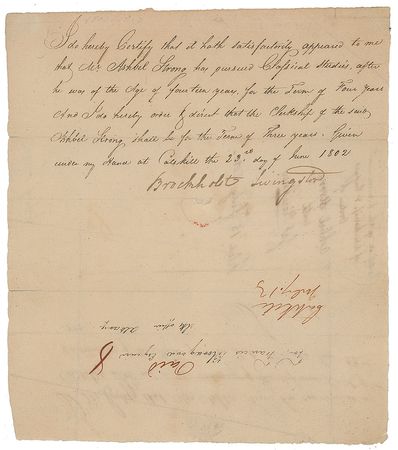 I do hereby Certify that it hath satisfactorily appeared to me
that Mr Ashbel Strong has pursued Classical Studies, after
he was of the Age of fourteen years, for the Term of Four years
And I do hereby order & direct that the Clerkship of the said
Ashbel Strong, shall be for the Term of Three years. Given
under my Hand at Catskill the 23rd day of June 1802
Brockholst Livingston
Catskill
July 13
office Albany
Francis Bloodgood Esquire
Paid 8